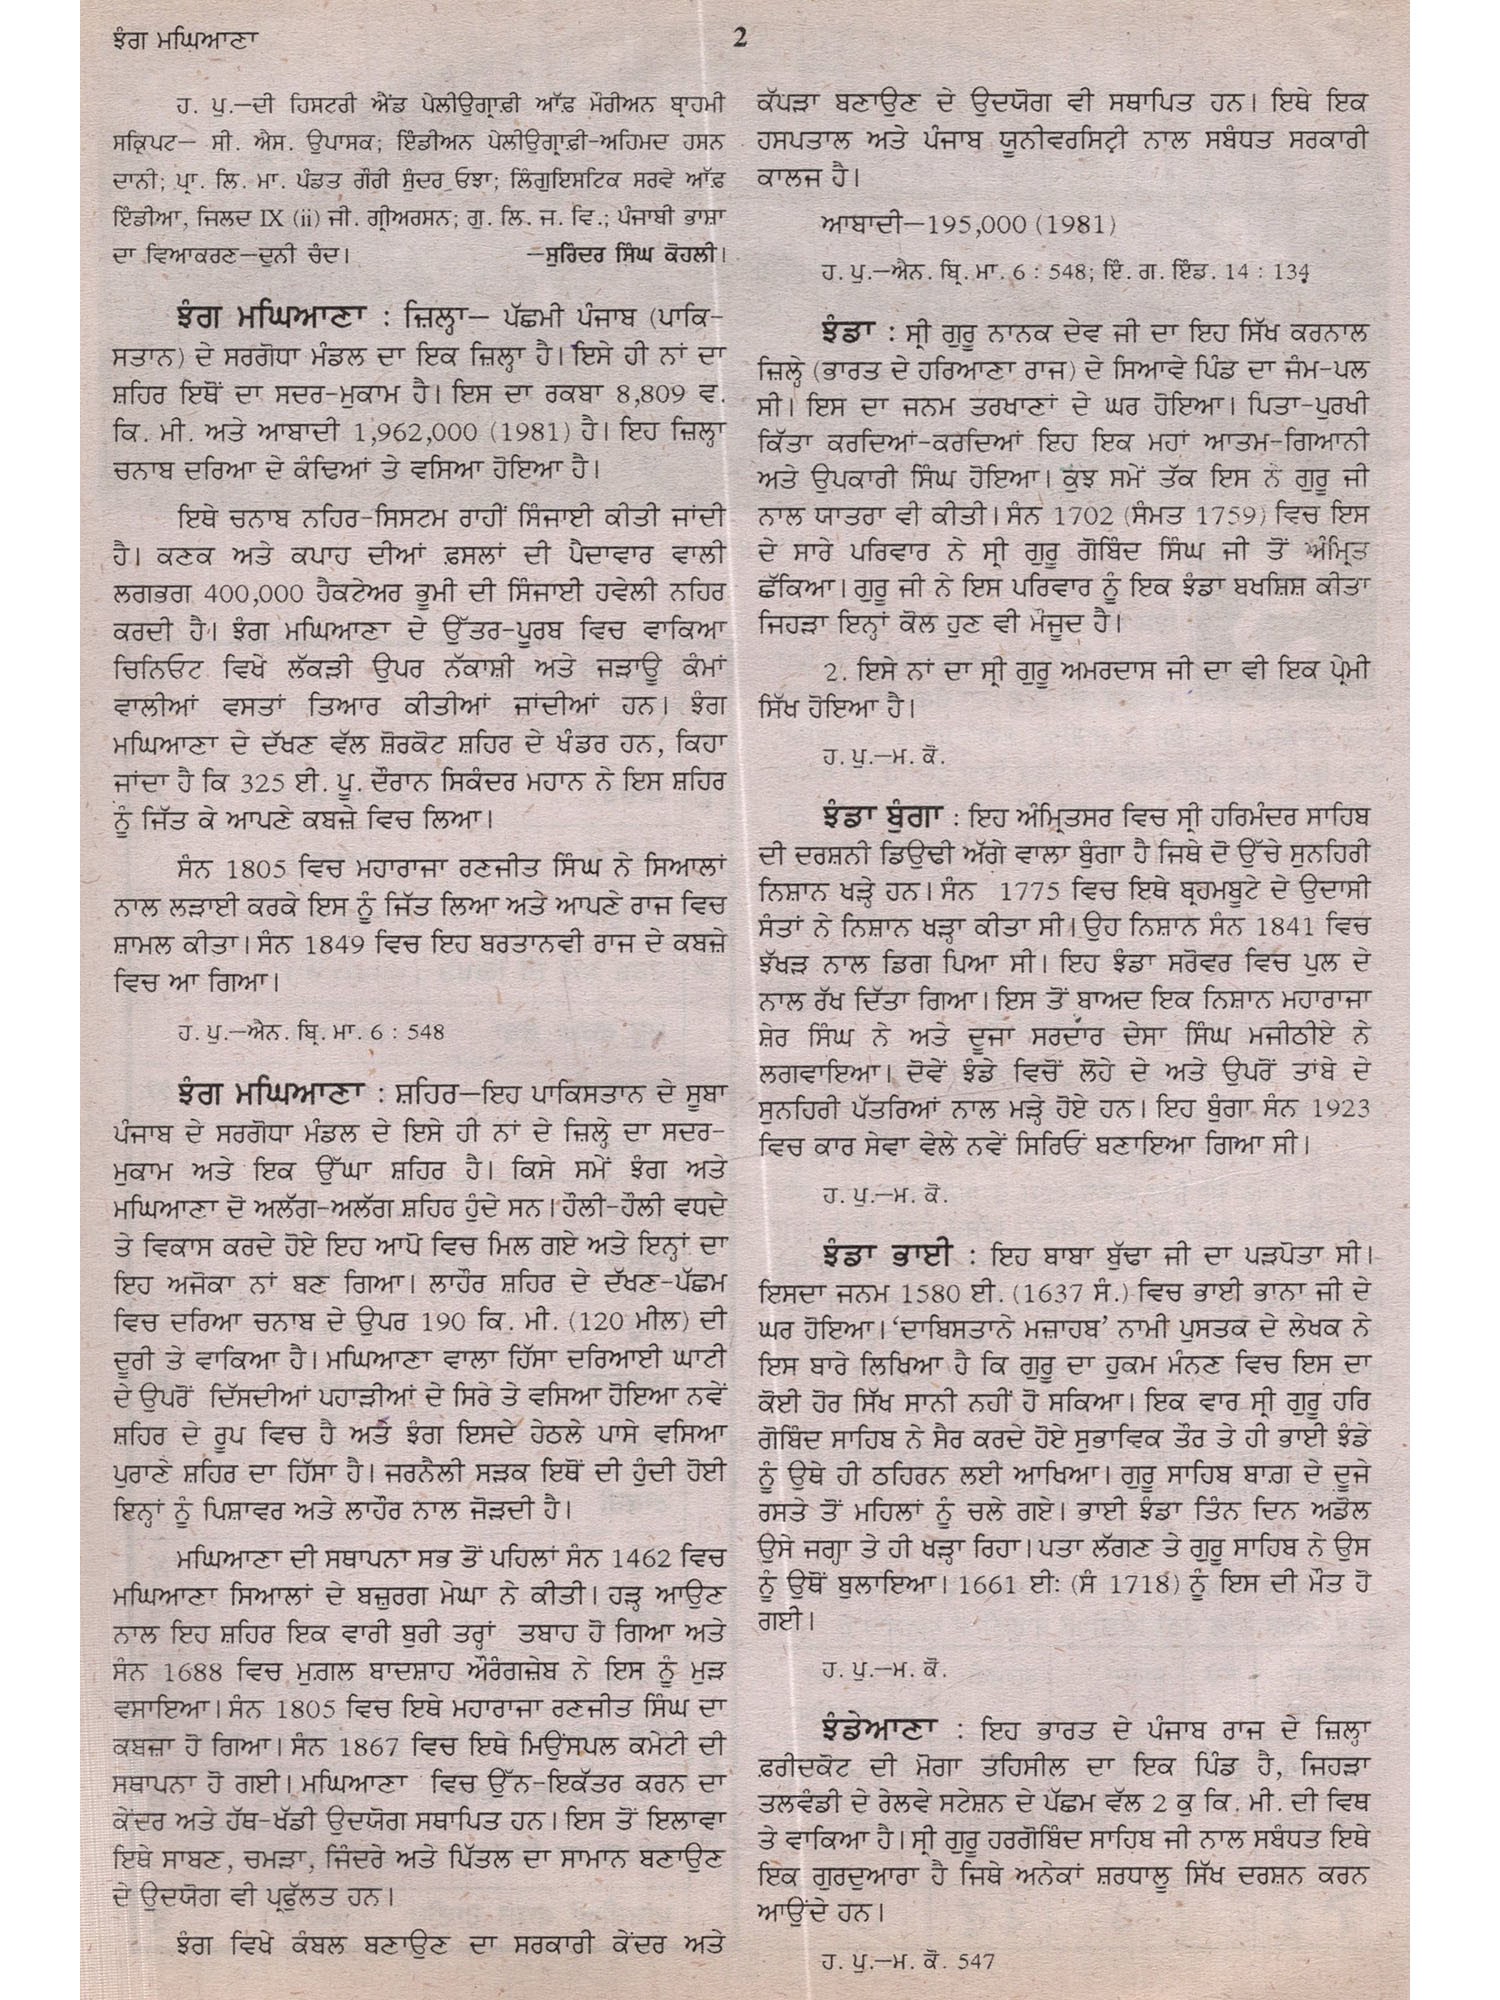 ਝੰਗ ਮਘਿਆਣਾ
2
ਹ. ਪੁ.—ਦੀ ਹਿਸਟਰੀ ਐਂਡ ਪੇਲੀਉਗ੍ਰਾਫ਼ੀ ਆੱਫ਼ ਮੌਰੀਅਨ ਬ੍ਰਾਹਮੀ
ਸਕ੍ਰਿਪਟ— ਸੀ. ਐਸ. ਉਪਾਸਕ; ਇੰਡੀਅਨ ਪੇਲੀਉਗ੍ਰਾਫ਼ੀ-ਅਹਿਮਦ ਹਸਨ
ਦਾਨੀ; ਪ੍ਰਾ. ਲਿ. ਮਾ. ਪੰਡਤ ਗੌਰੀ ਸੁੰਦਰ ਓਝਾ; ਲਿੰਗੁਇਸਟਿਕ ਸਰਵੇ ਆੱਫ਼
ਇੰਡੀਆ, ਜਿਲਦ IX (ii) ਜੀ. ਗ੍ਰੀਅਰਸਨ; ਗੁ. ਲਿ. ਜ. ਵਿ.; ਪੰਜਾਬੀ ਭਾਸ਼ਾ
ਦਾ ਵਿਆਕਰਣ—ਦੁਨੀ ਚੰਦ। —ਸੁਰਿੰਦਰ ਸਿੰਘ ਕੋਹਲੀ।
ਝੰਗ ਮਘਿਆਣਾ : ਜ਼ਿਲ੍ਹਾ— ਪੱਛਮੀ ਪੰਜਾਬ (ਪਾਕਿ-
ਸਤਾਨ) ਦੇ ਸਰਗੋਧਾ ਮੰਡਲ ਦਾ ਇਕ ਜ਼ਿਲ੍ਹਾ ਹੈ। ਇਸੇ ਹੀ ਨਾਂ ਦਾ
ਸ਼ਹਿਰ ਇਥੋਂ ਦਾ ਸਦਰ-ਮੁਕਾਮ ਹੈ। ਇਸ ਦਾ ਰਕਬਾ 8,809 ਵ.
ਕਿ. ਮੀ. ਅਤੇ ਆਬਾਦੀ 1,962,000 (1981) ਹੈ। ਇਹ ਜ਼ਿਲ੍ਹਾ
ਚਨਾਬ ਦਰਿਆ ਦੇ ਕੰਢਿਆਂ ਤੇ ਵਸਿਆ ਹੋਇਆ ਹੈ।
ਇਥੇ ਚਨਾਬ ਨਹਿਰ-ਸਿਸਟਮ ਰਾਹੀਂ ਸਿੰਜਾਈ ਕੀਤੀ ਜਾਂਦੀ
ਹੈ। ਕਣਕ ਅਤੇ ਕਪਾਹ ਦੀਆਂ ਫ਼ਸਲਾਂ ਦੀ ਪੈਦਾਵਾਰ ਵਾਲੀ
ਲਗਭਗ 400,000 ਹੈਕਟੇਅਰ ਭੂਮੀ ਦੀ ਸਿੰਜਾਈ ਹਵੇਲੀ ਨਹਿਰ
ਕਰਦੀ ਹੈ। ਝੰਗ ਮਘਿਆਣਾ ਦੇ ਉੱਤਰ-ਪੂਰਬ ਵਿਚ ਵਾਕਿਆ
ਚਿਨਿਓਟ ਵਿਖੇ ਲੱਕੜੀ ਉਪਰ ਨੱਕਾਸ਼ੀ ਅਤੇ ਜੜਾਊ ਕੰਮਾਂ
ਵਾਲੀਆਂ ਵਸਤਾਂ ਤਿਆਰ ਕੀਤੀਆਂ ਜਾਂਦੀਆਂ ਹਨ। ਝੰਗ
ਮਘਿਆਣਾ ਦੇ ਦੱਖਣ ਵੱਲ ਸ਼ੋਰਕੋਟ ਸ਼ਹਿਰ ਦੇ ਖੰਡਰ ਹਨ, ਕਿਹਾ
ਜਾਂਦਾ ਹੈ ਕਿ 325 ਈ. ਪੂ. ਦੌਰਾਨ ਸਿਕੰਦਰ ਮਹਾਨ ਨੇ ਇਸ ਸ਼ਹਿਰ
ਨੂੰ ਜਿੱਤ ਕੇ ਆਪਣੇ ਕਬਜ਼ੇ ਵਿਚ ਲਿਆ।
ਸੰਨ 1805 ਵਿਚ ਮਹਾਰਾਜਾ ਰਣਜੀਤ ਸਿੰਘ ਨੇ ਸਿਆਲਾਂ
ਨਾਲ ਲੜਾਈ ਕਰਕੇ ਇਸ ਨੂੰ ਜਿੱਤ ਲਿਆ ਅਤੇ ਆਪਣੇ ਰਾਜ ਵਿਚ
ਸ਼ਾਮਲ ਕੀਤਾ। ਸੰਨ 1849 ਵਿਚ ਇਹ ਬਰਤਾਨਵੀ ਰਾਜ ਦੇ ਕਬਜ਼ੇ
ਵਿਚ ਆ ਗਿਆ।
ਹ. ਪੁ.—ਐਨ. ਬ੍ਰਿ. ਮਾ. 6 : 548
ਝੰਗ ਮਘਿਆਣਾ : ਸ਼ਹਿਰ—ਇਹ ਪਾਕਿਸਤਾਨ ਦੇ ਸੂਬਾ
ਪੰਜਾਬ ਦੇ ਸਰਗੋਧਾ ਮੰਡਲ ਦੇ ਇਸੇ ਹੀ ਨਾਂ ਦੇ ਜ਼ਿਲ੍ਹੇ ਦਾ ਸਦਰ-
ਮੁਕਾਮ ਅਤੇ ਇਕ ਉੱਘਾ ਸ਼ਹਿਰ ਹੈ। ਕਿਸੇ ਸਮੇਂ ਝੰਗ ਅਤੇ
ਮਘਿਆਣਾ ਦੋ ਅਲੱਗ-ਅਲੱਗ ਸ਼ਹਿਰ ਹੁੰਦੇ ਸਨ। ਹੌਲੀ-ਹੌਲੀ ਵਧਦੇ
ਤੇ ਵਿਕਾਸ ਕਰਦੇ ਹੋਏ ਇਹ ਆਪੋ ਵਿਚ ਮਿਲ ਗਏ ਅਤੇ ਇਨ੍ਹਾਂ ਦਾ
ਇਹ ਅਜੋਕਾ ਨਾਂ ਬਣ ਗਿਆ। ਲਾਹੌਰ ਸ਼ਹਿਰ ਦੇ ਦੱਖਣ-ਪੱਛਮ
ਵਿਚ ਦਰਿਆ ਚਨਾਬ ਦੇ ਉਪਰ 190 ਕਿ. ਮੀ. (120 ਮੀਲ) ਦੀ
ਦੂਰੀ ਤੇ ਵਾਕਿਆ ਹੈ। ਮਘਿਆਣਾ ਵਾਲਾ ਹਿੱਸਾ ਦਰਿਆਈ ਘਾਟੀ
ਦੇ ਉਪਰੋਂ ਦਿੱਸਦੀਆਂ ਪਹਾੜੀਆਂ ਦੇ ਸਿਰੇ ਤੇ ਵਸਿਆ ਹੋਇਆ ਨਵੇਂ
ਸ਼ਹਿਰ ਦੇ ਰੂਪ ਵਿਚ ਹੈ ਅਤੇ ਝੰਗ ਇਸਦੇ ਹੇਠਲੇ ਪਾਸੇ ਵਸਿਆ
ਪੁਰਾਣੇ ਸ਼ਹਿਰ ਦਾ ਹਿੱਸਾ ਹੈ। ਜਰਨੈਲੀ ਸੜਕ ਇਥੋਂ ਦੀ ਹੁੰਦੀ ਹੋਈ
ਇਨ੍ਹਾਂ ਨੂੰ ਪਿਸ਼ਾਵਰ ਅਤੇ ਲਾਹੌਰ ਨਾਲ ਜੋੜਦੀ ਹੈ।
ਮਘਿਆਣਾ ਦੀ ਸਥਾਪਨਾ ਸਭ ਤੋਂ ਪਹਿਲਾਂ ਸੰਨ 1462 ਵਿਚ
ਮਘਿਆਣਾ ਸਿਆਲਾਂ ਦੇ ਬਜ਼ੁਰਗ ਮੇਘਾ ਨੇ ਕੀਤੀ। ਹੜ੍ਹ ਆਉਣ
ਨਾਲ ਇਹ ਸ਼ਹਿਰ ਇਕ ਵਾਰੀ ਬੁਰੀ ਤਰ੍ਹਾਂ ਤਬਾਹ ਹੋ ਗਿਆ ਅਤੇ
ਸੰਨ 1688 ਵਿਚ ਮੁਗ਼ਲ ਬਾਦਸ਼ਾਹ ਔਰੰਗਜ਼ੇਬ ਨੇ ਇਸ ਨੂੰ ਮੁੜ
ਵਸਾਇਆ। ਸੰਨ 1805 ਵਿਚ ਇਥੇ ਮਹਾਰਾਜਾ ਰਣਜੀਤ ਸਿੰਘ ਦਾ
ਕਬਜ਼ਾ ਹੋ ਗਿਆ। ਸੰਨ 1867 ਵਿਚ ਇਥੇ ਮਿਉਂਸਪਲ ਕਮੇਟੀ ਦੀ
ਸਥਾਪਨਾ ਹੋ ਗਈ। ਮਘਿਆਣਾ ਵਿਚ ਉੱਨ-ਇਕੱਤਰ ਕਰਨ ਦਾ
ਕੇਂਦਰ ਅਤੇ ਹੱਥ-ਖੱਡੀ ਉਦਯੋਗ ਸਥਾਪਿਤ ਹਨ। ਇਸ ਤੋਂ ਇਲਾਵਾ
ਇਥੇ ਸਾਬਣ, ਚਮੜਾ, ਜਿੰਦਰੇ ਅਤੇ ਪਿੱਤਲ ਦਾ ਸਾਮਾਨ ਬਣਾਉਣ
ਦੇ ਉਦਯੋਗ ਵੀ ਪ੍ਰਫੁੱਲਤ ਹਨ।
ਝੰਗ ਵਿਖੇ ਕੰਬਲ ਬਣਾਉਣ ਦਾ ਸਰਕਾਰੀ ਕੇਂਦਰ ਅਤੇ
ਕੱਪੜਾ ਬਣਾਉਣ ਦੇ ਉਦਯੋਗ ਵੀ ਸਥਾਪਿਤ ਹਨ। ਇਥੇ ਇਕ
ਹਸਪਤਾਲ ਅਤੇ ਪੰਜਾਬ ਯੂਨੀਵਰਸਿਟੀ ਨਾਲ ਸਬੰਧਤ ਸਰਕਾਰੀ
ਕਾਲਜ ਹੈ।
ਆਬਾਦੀ—195,000 (1981)
ਹ. ਪੁ.—ਐਨ. ਬ੍ਰਿ. ਮਾ. 6 : 548; ਇੰ. ਗ. ਇੰਡ. 14 : 134
ਝੰਡਾ : ਸ੍ਰੀ ਗੁਰੂ ਨਾਨਕ ਦੇਵ ਜੀ ਦਾ ਇਹ ਸਿੱਖ ਕਰਨਾਲ
ਜ਼ਿਲ੍ਹੇ (ਭਾਰਤ ਦੇ ਹਰਿਆਣਾ ਰਾਜ) ਦੇ ਸਿਆਵੇ ਪਿੰਡ ਦਾ ਜੰਮ-ਪਲ
ਸੀ। ਇਸ ਦਾ ਜਨਮ ਤਰਖਾਣਾਂ ਦੇ ਘਰ ਹੋਇਆ। ਪਿਤਾ-ਪੁਰਖੀ
ਕਿੱਤਾ ਕਰਦਿਆਂ-ਕਰਦਿਆਂ ਇਹ ਇਕ ਮਹਾਂ ਆਤਮ-ਗਿਆਨੀ
ਅਤੇ ਉਪਕਾਰੀ ਸਿੰਘ ਹੋਇਆ। ਕੁਝ ਸਮੇਂ ਤੱਕ ਇਸ ਨੇ ਗੁਰੂ ਜੀ
ਨਾਲ ਯਾਤਰਾ ਵੀ ਕੀਤੀ। ਸੰਨ 1702 (ਸੰਮਤ 1759) ਵਿਚ ਇਸ
ਦੇ ਸਾਰੇ ਪਰਿਵਾਰ ਨੇ ਸ੍ਰੀ ਗੁਰੂ ਗੋਬਿੰਦ ਸਿੰਘ ਜੀ ਤੋਂ ਅੰਮ੍ਰਿਤ
ਛੱਕਿਆ। ਗੁਰੂ ਜੀ ਨੇ ਇਸ ਪਰਿਵਾਰ ਨੂੰ ਇਕ ਝੰਡਾ ਬਖਸ਼ਿਸ਼ ਕੀਤਾ
ਜਿਹੜਾ ਇਨ੍ਹਾਂ ਕੋਲ ਹੁਣ ਵੀ ਮੌਜੂਦ ਹੈ।
2. ਇਸੇ ਨਾਂ ਦਾ ਸ੍ਰੀ ਗੁਰੂ ਅਮਰਦਾਸ ਜੀ ਦਾ ਵੀ ਇਕ ਪ੍ਰੇਮੀ
ਸਿੱਖ ਹੋਇਆ ਹੈ।
ਹ. ਪੁ.—ਮ. ਕੋ.
ਝੰਡਾ ਬੁੰਗਾ : ਇਹ ਅੰਮ੍ਰਿਤਸਰ ਵਿਚ ਸ੍ਰੀ ਹਰਿਮੰਦਰ ਸਾਹਿਬ
ਦੀ ਦਰਸ਼ਨੀ ਡਿਉਢੀ ਅੱਗੇ ਵਾਲਾ ਬੁੰਗਾ ਹੈ ਜਿਥੇ ਦੋ ਉੱਚੇ ਸੁਨਹਿਰੀ
ਨਿਸ਼ਾਨ ਖੜ੍ਹੇ ਹਨ। ਸੰਨ 1775 ਵਿਚ ਇਥੇ ਬ੍ਰਹਮਬੂਟੇ ਦੇ ਉਦਾਸੀ
ਸੰਤਾਂ ਨੇ ਨਿਸ਼ਾਨ ਖੜ੍ਹਾ ਕੀਤਾ ਸੀ। ਉਹ ਨਿਸ਼ਾਨ ਸੰਨ 1841 ਵਿਚ
ਝੱਖੜ ਨਾਲ ਡਿਗ ਪਿਆ ਸੀ। ਇਹ ਝੰਡਾ ਸਰੋਵਰ ਵਿਚ ਪੁਲ ਦੇ
ਨਾਲ ਰੱਖ ਦਿੱਤਾ ਗਿਆ। ਇਸ ਤੋਂ ਬਾਅਦ ਇਕ ਨਿਸ਼ਾਨ ਮਹਾਰਾਜਾ
ਸ਼ੇਰ ਸਿੰਘ ਨੇ ਅਤੇ ਦੂਜਾ ਸਰਦਾਰ ਦੇਸਾ ਸਿੰਘ ਮਜੀਠੀਏ ਨੇ
ਲਗਵਾਇਆ। ਦੋਵੇਂ ਝੰਡੇ ਵਿਚੋਂ ਲੋਹੇ ਦੇ ਅਤੇ ਉਪਰੋਂ ਤਾਂਬੇ ਦੇ
ਸੁਨਹਿਰੀ ਪੱਤਰਿਆਂ ਨਾਲ ਮੜ੍ਹੇ ਹੋਏ ਹਨ। ਇਹ ਬੁੰਗਾ ਸੰਨ 1923
ਵਿਚ ਕਾਰ ਸੇਵਾ ਵੇਲੇ ਨਵੇਂ ਸਿਰਿਓਂ ਬਣਾਇਆ ਗਿਆ ਸੀ।
ਹ. ਪੁ.—ਮ. ਕੋ.
ਝੰਡਾ ਭਾਈ : ਇਹ ਬਾਬਾ ਬੁੱਢਾ ਜੀ ਦਾ ਪੜਪੋਤਾ ਸੀ।
ਇਸਦਾ ਜਨਮ 1580 ਈ. (1637 ਸੰ.) ਵਿਚ ਭਾਈ ਭਾਨਾ ਜੀ ਦੇ
ਘਰ ਹੋਇਆ। 'ਦਾਬਿਸਤਾਨੇ ਮਜ਼ਾਹਬ' ਨਾਮੀ ਪੁਸਤਕ ਦੇ ਲੇਖਕ ਨੇ
ਇਸ ਬਾਰੇ ਲਿਖਿਆ ਹੈ ਕਿ ਗੁਰੂ ਦਾ ਹੁਕਮ ਮੰਨਣ ਵਿਚ ਇਸ ਦਾ
ਕੋਈ ਹੋਰ ਸਿੱਖ ਸਾਨੀ ਨਹੀਂ ਹੋ ਸਕਿਆ। ਇਕ ਵਾਰ ਸ੍ਰੀ ਗੁਰੂ ਹਰਿ
ਗੋਬਿੰਦ ਸਾਹਿਬ ਨੇ ਸੈਰ ਕਰਦੇ ਹੋਏ ਸੁਭਾਵਿਕ ਤੌਰ ਤੇ ਹੀ ਭਾਈ ਝੰਡੇ
ਨੂੰ ਉਥੇ ਹੀ ਠਹਿਰਨ ਲਈ ਆਖਿਆ। ਗੁਰੂ ਸਾਹਿਬ ਬਾਗ਼ ਦੇ ਦੂਜੇ
ਰਸਤੇ ਤੋਂ ਮਹਿਲਾਂ ਨੂੰ ਚਲੇ ਗਏ। ਭਾਈ ਝੰਡਾ ਤਿੰਨ ਦਿਨ ਅਡੋਲ
ਉਸੇ ਜਗ੍ਹਾ ਤੇ ਹੀ ਖੜ੍ਹਾ ਰਿਹਾ। ਪਤਾ ਲੱਗਣ ਤੇ ਗੁਰੂ ਸਾਹਿਬ ਨੇ ਉਸ
ਨੂੰ ਉਥੋਂ ਬੁਲਾਇਆ। 1661 ਈ: (ਸੰ 1718) ਨੂੰ ਇਸ ਦੀ ਮੌਤ ਹੋ
ਗਈ।
ਹ. ਪੁ.—ਮ. ਕੋ.
ਝੰਡੇਆਣਾ : ਇਹ ਭਾਰਤ ਦੇ ਪੰਜਾਬ ਰਾਜ ਦੇ ਜ਼ਿਲ੍ਹਾ
ਫ਼ਰੀਦਕੋਟ ਦੀ ਮੋਗਾ ਤਹਿਸੀਲ ਦਾ ਇਕ ਪਿੰਡ ਹੈ, ਜਿਹੜਾ
ਤਲਵੰਡੀ ਦੇ ਰੇਲਵੇ ਸਟੇਸ਼ਨ ਦੇ ਪੱਛਮ ਵੱਲ 2 ਕੁ ਕਿ. ਮੀ. ਦੀ ਵਿਥ
ਤੇ ਵਾਕਿਆ ਹੈ। ਸ੍ਰੀ ਗੁਰੂ ਹਰਗੋਬਿੰਦ ਸਾਹਿਬ ਜੀ ਨਾਲ ਸਬੰਧਤ ਇਥੇ
ਇਕ ਗੁਰਦੁਆਰਾ ਹੈ ਜਿਥੇ ਅਨੇਕਾਂ ਸ਼ਰਧਾਲੂ ਸਿੱਖ ਦਰਸ਼ਨ ਕਰਨ
ਆਉਂਦੇ ਹਨ।
ਹ. ਪੁ.—ਮ. ਕੋ. 547